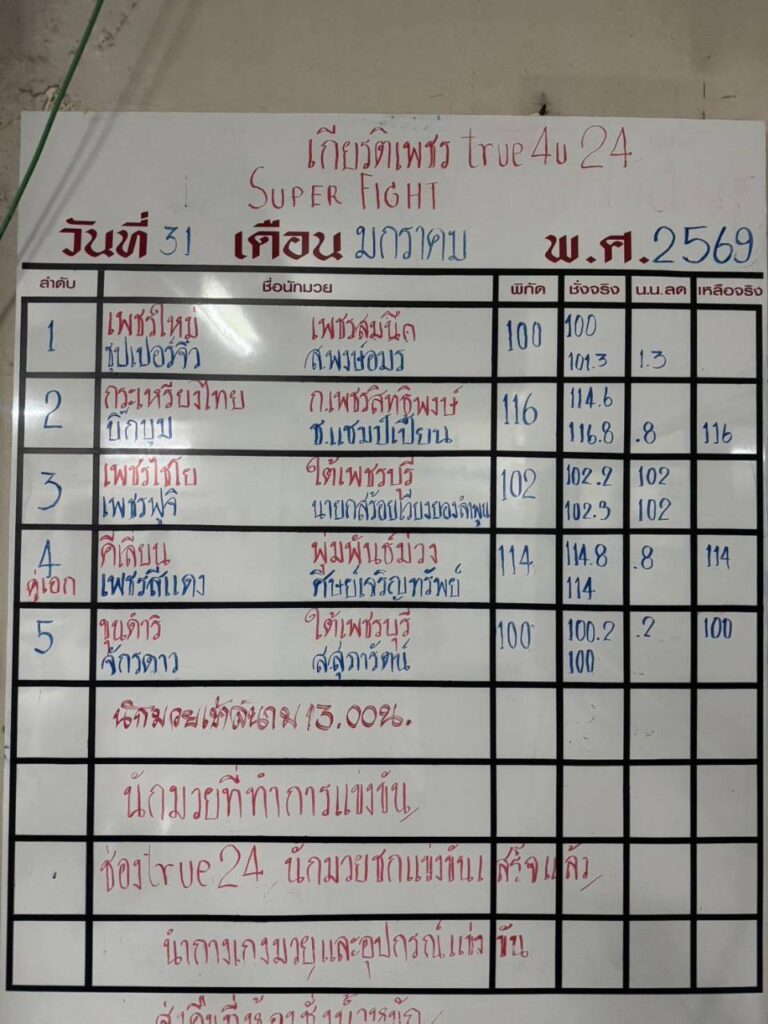 เกียรติเพชร true4u 24
SUPER FIGHT
วันที่ 31 เดือน มกราคม พ.ศ. 2569
ลำดับ ชื่อนักมวย พิกัด ชั่งจริง น.น.ลด เหลือจริง
1 เพชรใหม่ เพชรสมนึก 100 100
ซุปเปอร์จิ๋ว ส.พงษ์อมร 101.3 1.3
2 กระเหรี่ยงไทย ก.เพชรสิทธิพงษ์ 116 114.6
บิ๊กบูม ช.แชมป์เปี้ยน 116.8 .8 116
3 เพชรไชโย ใต้เพชรบุรี 102 102.2 102
เพชรฟูจิ นายกสร้อยเวียงยองลำพูน 102.3 102
4 คีเลียน พุ่มพันธ์ม่วง 114 114.8 .8 114
คู่เอก เพชรสีแดง ศิษย์เจริญทรัพย์ 114
5 ขุนดำริ ใต้เพชรบุรี 100 100.2 .2 100
จักรดาว ส.สุภารัตน์ 100
นักมวยเข้าสนาม 13.00น.
นักมวยที่ทำการแข่งขัน
ช่อง true 24 นักมวยชกแข่งขันเสร็จแล้ว
นำกางเกงมวยและอุปกรณ์แข่งขัน
ส่งคืนที่ห้องชั่งน้ำหนัก